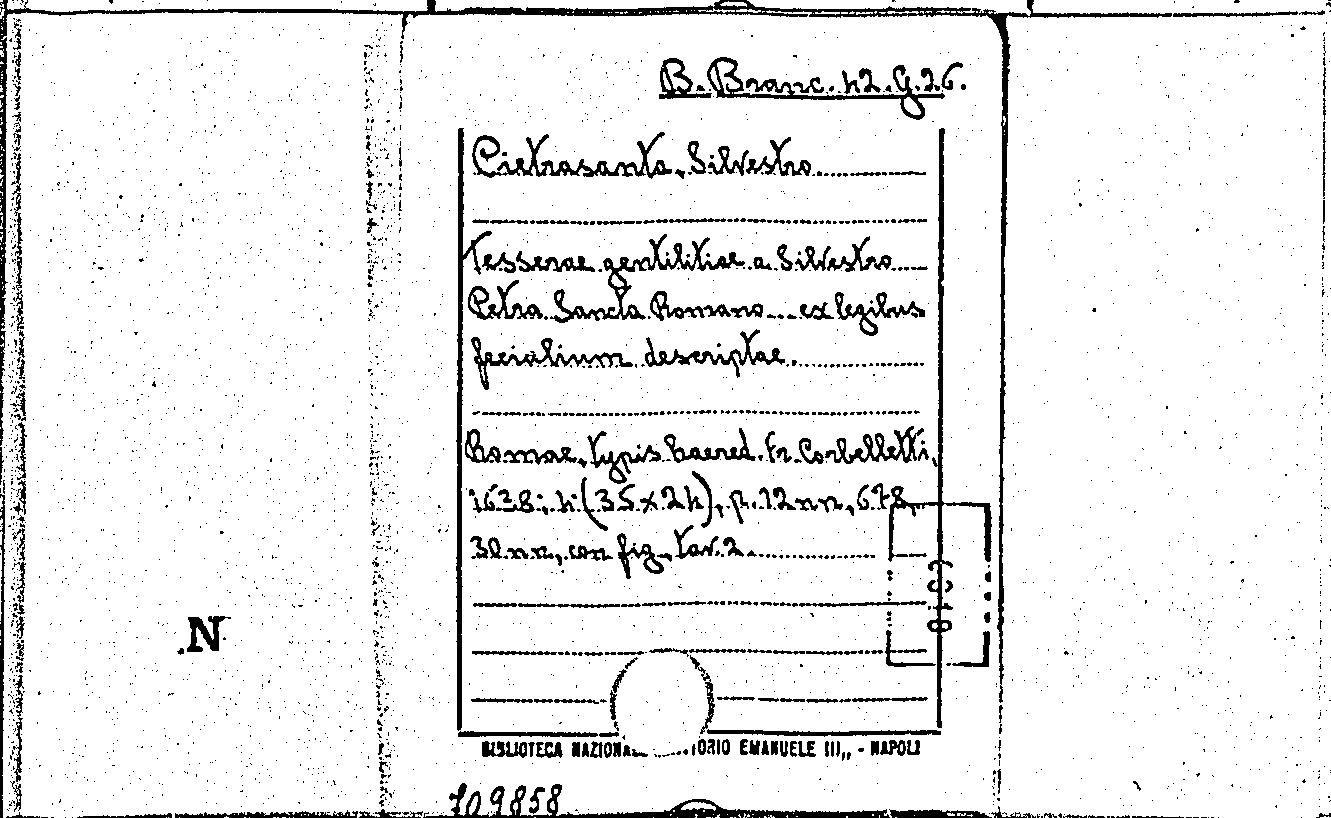 B. Branc. 42. G. 26.
Pietrasanta, Silvestro.
Tesserae gentilitiae a Silvestro
Petra Sancta Romano... ex legibus
fecialium descriptae.
Romae, typis haered. Fr. Corbelletti,
1638; 4 (35 x 24), p. 12 nn, 678,
30 nn, con fig., tav. 2.
N
BIBLIOTECA NAZIONALE VITTORIO EMANUELE III,, - NAPOLI
709858